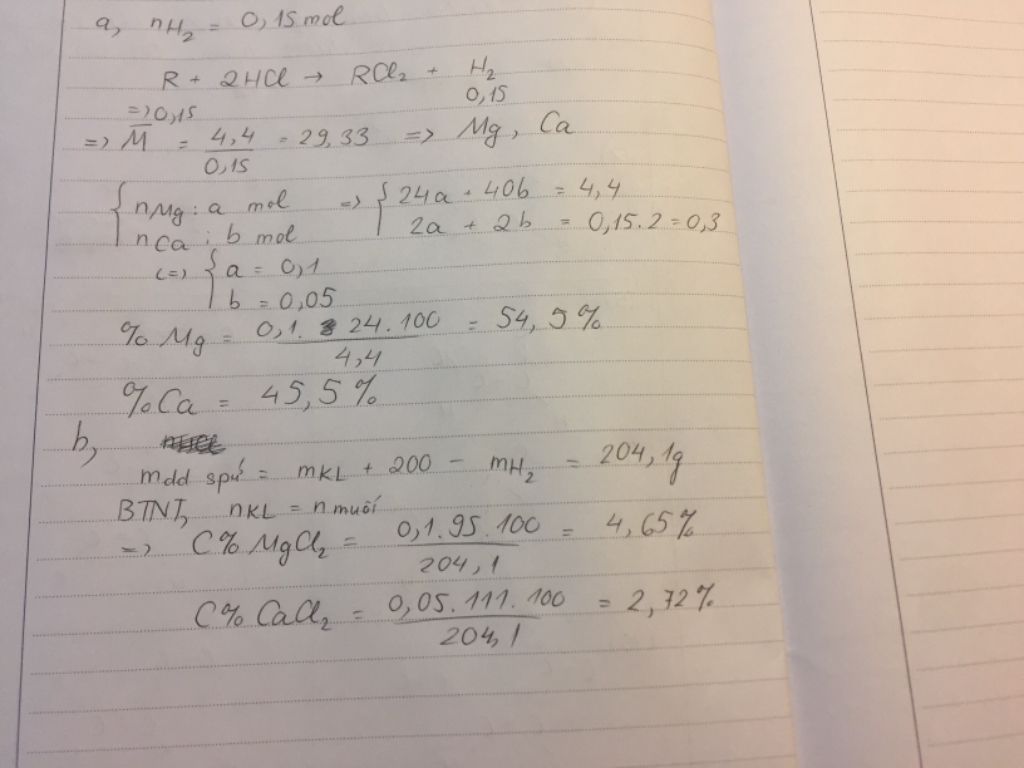 a, nH₂ = 0,15 mol
R + 2HCl → RCl₂ + H₂
=> 0,15 0,15
=> M̄ = 4,4 / 0,15 = 29,33 => Mg, Ca
{ nMg : a mol => { 24a + 40b = 4,4
nCa : b mol 2a + 2b = 0,15.2 = 0,3
<=> { a = 0,1
b = 0,05
% Mg = 0,1. 24.100 / 4,4 = 54,5%
%Ca = 45,5%
b,
mdd spứ = mKL + 200 - mH₂ = 204,1g
BTNT, nKL = n muối
=> C% MgCl₂ = 0,1.95.100 / 204,1 = 4,65%
C% CaCl₂ = 0,05.111.100 / 204,1 = 2,72%